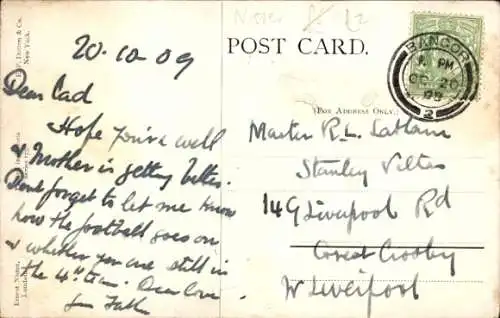 Nister
£2
E.P. Dutton & Co.
New York.
POST CARD.
BANGOR
PM
OC 20
09
2
(FOR ADDRESS ONLY.)
Ernest Nister,
London
20.10.09
Dear Lad
Hope you're well
& Mother is getting better.
Dont forget to let me know
how the football goes on
& whether you are still in
the 4th team. Dear love
Father
Master R.L. Latham
Stanley Villas
149 Liverpool Rd
Great Crosby
Nr Liverpool